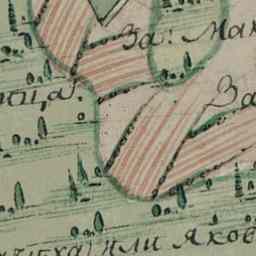 За: Мак
ица.
За
или яков